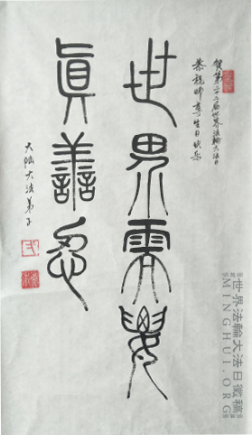 贺第二十届世界法轮大法日
恭祝师尊生日快乐
世界需要
眞善忍
大陆大法弟子
世界法輪大法日徵稿
MINGHUI.ORG